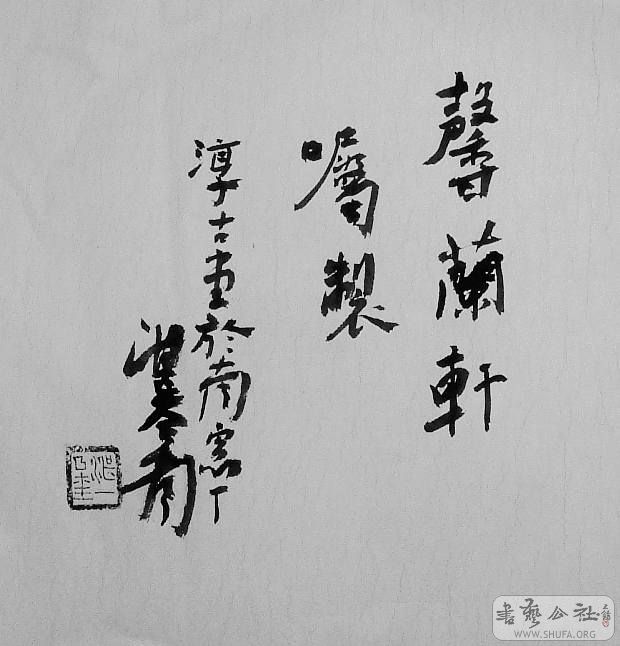 馨蘭軒
囑製
淳古堂於南窓下
書藝公社
WWW.SHUFA.ORG